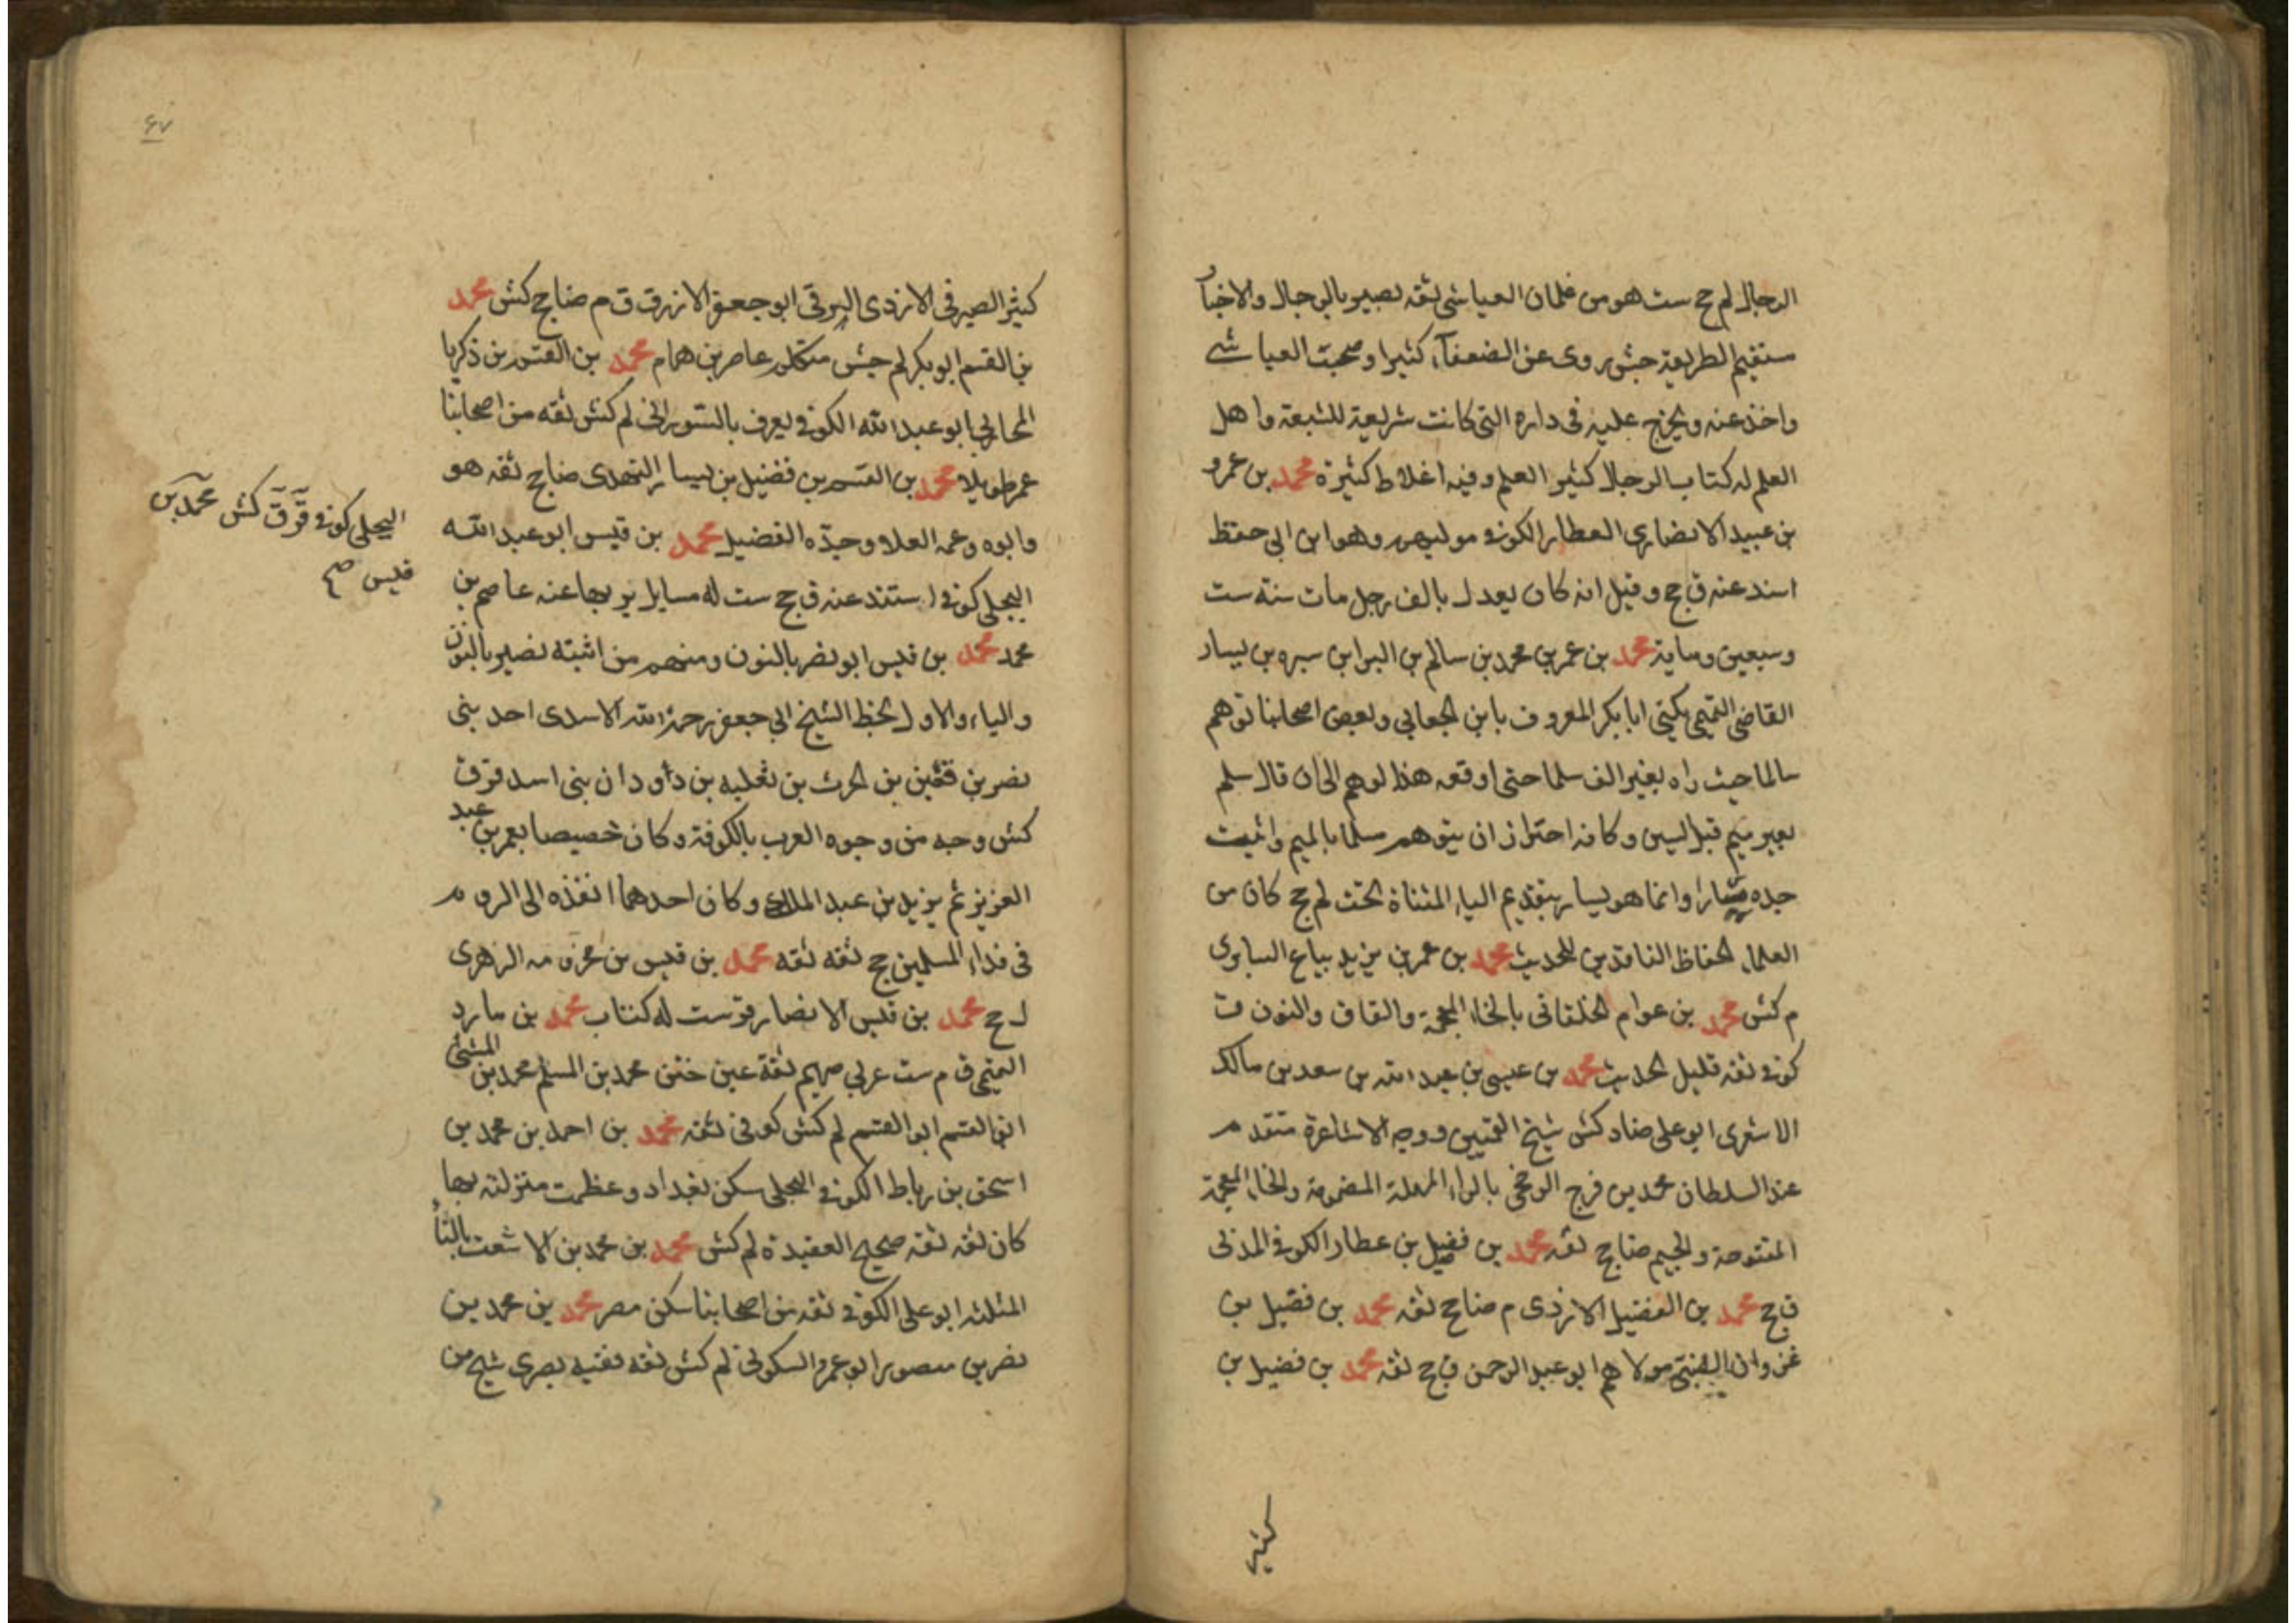 الرجال لم جح ست هو من غلمان العياشي ثقه بصير بالرجال والاخبار
مستقيم الطريقة جش روى عن الضعفآء كثيرا وصحب العياشي
واخذ عنه وتخرج عليه في داره التي كانت شريعة للشيعة واهل
العلم له كتاب الرجال كثير العلم وفيه اغلاط كثيرة محمد بن عمرو
بن عبيد الانصاري العطار الكوفي موليهم وهو ابن ابي حفظ
اسند عنه ق جح وقيل انه كان يعدل بالف رجل مات سنة ست
وسبعين وماية محمد بن عمر بن محمد بن سالم بن البرا بن سبره بن يسار
القاضي التميمي يكنى ابا بكر المعروف بابن الجعابي وبعض اصحابنا توهم
سالما حيث راه بغير الف سلما حتى اوقعه هذا الوهم الى ان قال سلم
بغير ميم قبل السين وكانه احتراز ان يتوهم مسلما بالميم واثبت
جده سيارا وانما هو يسار بتقديم الياء المثناة تحت لم جح كان من
العلماء الحفاظ الناقدين للحديث محمد بن عمر بن يزيد بياع السابري
م كش محمد بن عوام الخلقاني بالخاء المعجمة والقاف والنون ق
كوفي ثقه قليل الحديث محمد بن عيسى بن عبد الله بن سعد بن مالك
الاشعري ابو علي ضا د كش شيخ القميين ووجه الاشاعرة متقدم
عند السلطان محمد بن فرج الرخجي بالراء المهملة المضمومة والخاء المعجمة
المفتوحة والجيم ضا جح ثقه محمد بن فضيل بن عطار الكوفي المدني
ق جح محمد بن الفضيل الازدي م ضا جح ثقه محمد بن فضيل بن
غزوان الضبي مولاهم ابو عبد الرحمن ق جح ثقه محمد بن فضيل بن
كثير
٤٧
كثير الصيرفي الازدي البرقي ابو جعفر الازرق ق م ضا جح كش محمد
بن القسم ابو بكر لم جش متكلم عاصر بن همام محمد بن القسم بن زكريا
المحاربي ابو عبد الله الكوفي يعرف بالسوراني لم كش ثقه من اصحابنا
عمر طويلا محمد بن القسم بن فضيل بن يسار النهدي ضا جح ثقه هو
وابوه وعمه العلا وجدّه الفضيل محمد بن قيس ابو عبد الله
البجلي كوفي اسند عنه ق جح ست له مسايل يرويها عنه عاصم بن
محمد محمد بن قيس ابو نصر بالنون ومنهم من اثبته نصير بالنون
والياء والاول بخط الشيخ ابي جعفر رحمة الله الاسدي احد بني
نصر بن قعين بن الحرث بن ثعلبه بن داودان بني اسد ق ق
كش وجه من وجوه العرب بالكوفة وكان خصيصا بعمر بن عبد
العزيز ثم يزيد بن عبد الملك وكان احدهما انفذه الى الروم
في فداء المسلمين جح ثقه ثقه محمد بن قيس بن مخرمه الزهري
ل جح محمد بن قيس الانصار قر ست له كتاب محمد بن مارد
التميمي ق م ست عربي صميم ثقة عين ختن محمد بن المسلم محمد بن المثنى
ابن القسم ابو القسم لم كش كوفي ثقه محمد بن احمد بن محمد بن
اسحق بن رباط الكوفي البجلي سكن بغداد وعظمت منزلته بها
كان ثقه ثقه صحيح العقيدة لم كش محمد بن محمد بن الاشعث بالثاء
المثلثه ابو علي الكوفي ثقه من اصحابنا سكن مصر محمد بن محمد بن
نصر بن منصور ابو عمرو السكوني لم كش ثقه فقيه بصري شيخ من
البجلي كوفي ق ق كش محمد بن
قيس صح